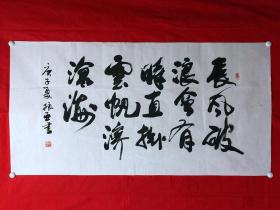 長風破
浪會有
時直掛
雲帆濟
滄海
庚子夏振亚書